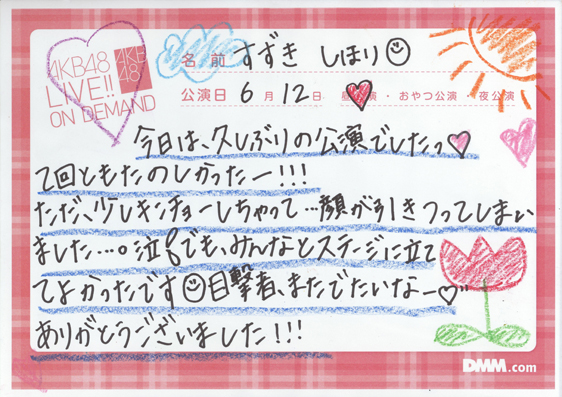 AKB48
LIVE!!
ON DEMAND
AKB
48
名前 すずき しほり
公演日 6月12日 ・おやつ公演・夜公演
今日は、久しぶりの公演でしたっ♥
て回ともたのしかったー!!!
ただ、少しキンチョーしちゃって…顔が引きつってしまい
ました…。泣 でも、みんなとステージに立て
てよかったです☺目撃者、またでたいなー♡
ありがとうございました!!!
DMM.com